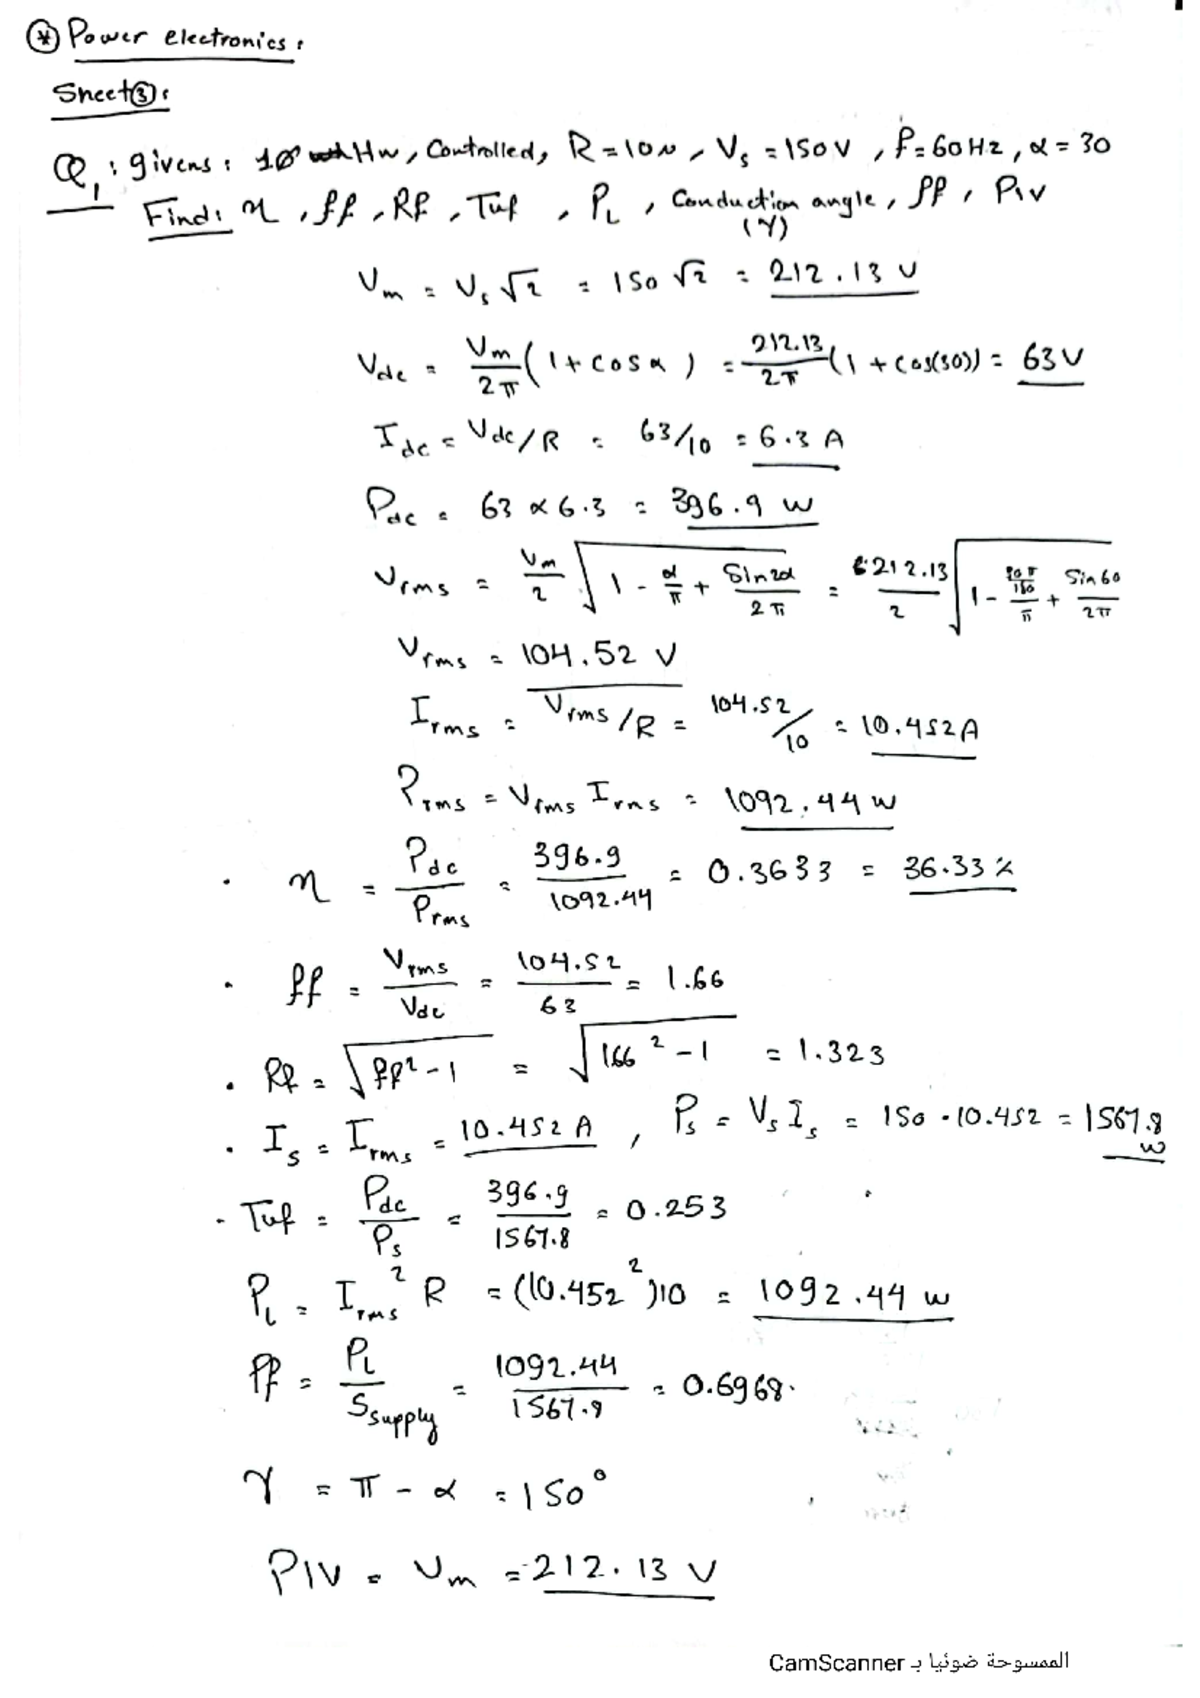 ⊛ Power electronics:
Sheet③:
Q₁: givens: 1Ø Hw, Controlled, R=10Ω, Vs=150V, f=60Hz, α=30
Find: η, ff, Rf, Tuf, PL, Conduction angle, Pf, PIV
(γ)
Vm = Vs√2 = 150√2 = 212.13 V
Vdc = Vm/2π (1+cosα) = 212.13/2π (1+cos(30)) = 63V
Idc = Vdc/R = 63/10 = 6.3 A
Pdc = 63 × 6.3 = 396.9 w
Vrms = Vm/2 √(1 - α/π + Sin2α/2π) = 212.13/2 √(1 - (30π/180)/π + Sin60/2π)
Vrms = 104.52 V
Irms = Vrms/R = 104.52/10 = 10.452A
Prms = Vrms Irms = 1092.44 w
· η = Pdc/Prms = 396.9/1092.44 = 0.3633 = 36.33%
· ff = Vrms/Vdc = 104.52/63 = 1.66
· Rf = √(ff²-1) = √(1.66²-1) = 1.323
· Is = Irms = 10.452 A, Ps = Vs Is = 150 · 10.452 = 1567.8 w
· Tuf = Pdc/Ps = 396.9/1567.8 = 0.253
PL = Irms² R = (10.452²)10 = 1092.44 w
Pf = PL/Ssupply = 1092.44/1567.8 = 0.6968
γ = π - α = 150°
PIV = Vm = 212.13 V
الممسوحة ضوئيا بـ CamScanner